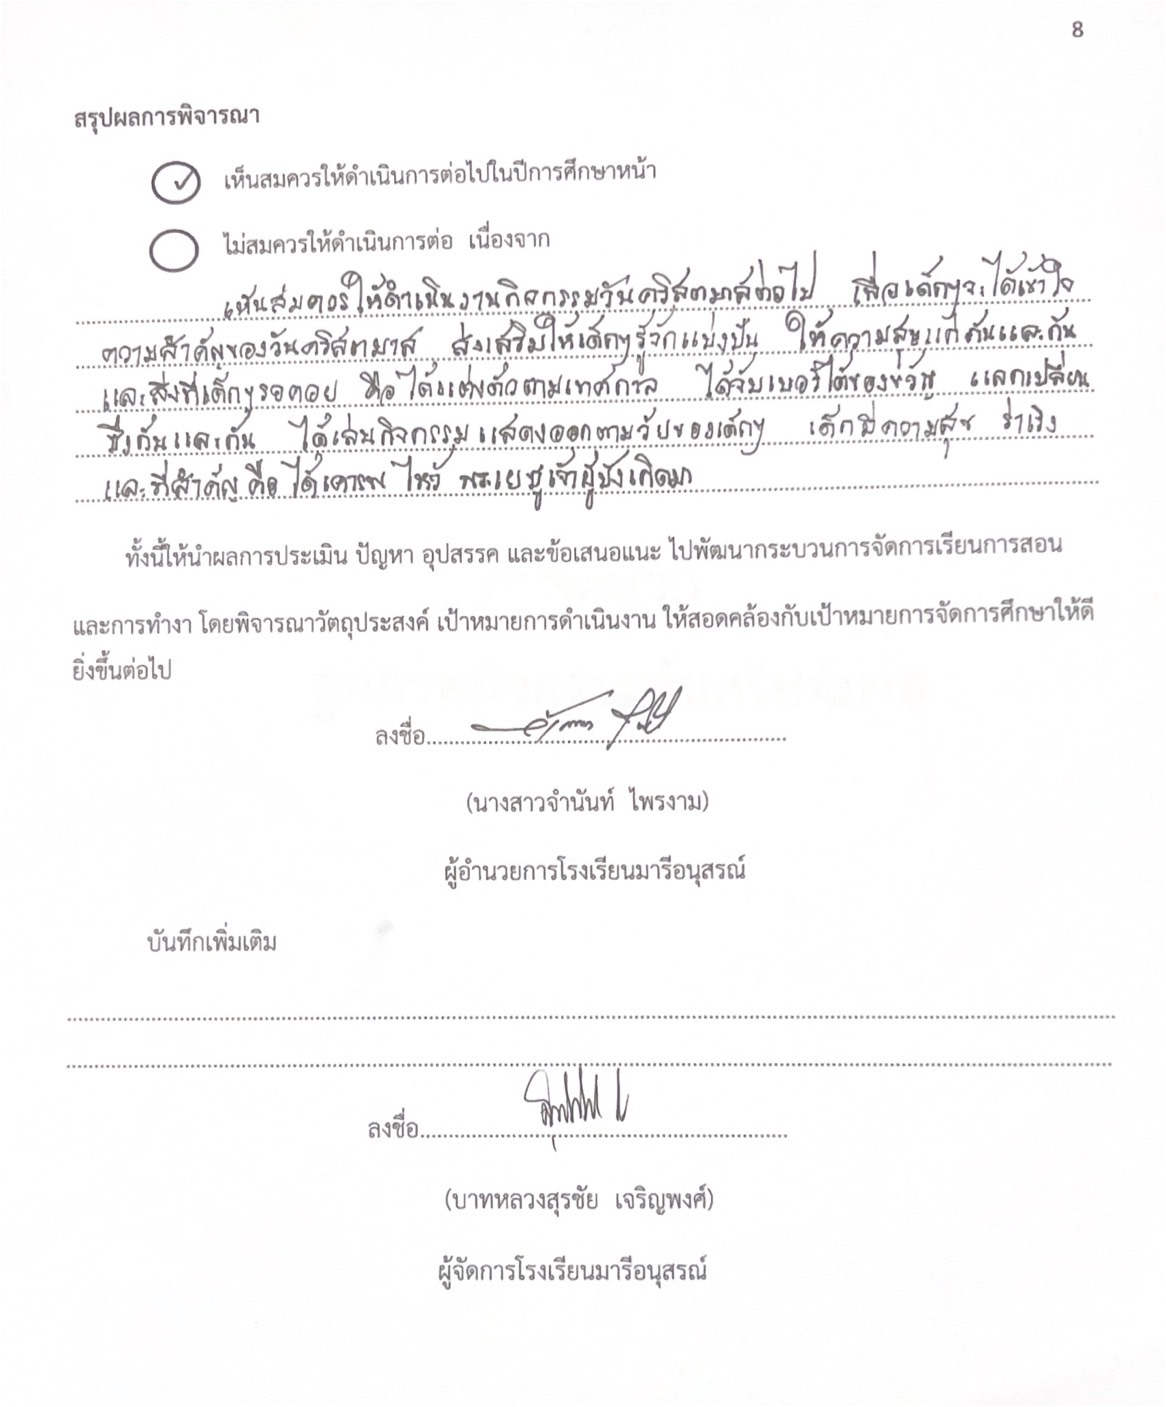 8
สรุปผลการพิจารณา
เห็นสมควรให้ดำเนินการต่อไปในปีการศึกษาหน้า
ไม่สมควรให้ดำเนินการต่อ เนื่องจาก
เห็นสมควรให้ดำเนินงานกิจกรรมวันคริสตมาสต่อไป เพื่อเด็กๆจะได้เข้าใจ
ความสำคัญของวันคริสตมาส ส่งเสริมให้เด็กๆรู้จักแบ่งปัน ให้ความสุขแก่กันและกัน
และสิ่งที่เด็กๆรอคอย คือได้แต่งตัวตามเทศกาล ได้จับเบอร์ได้ของขวัญ แลกเปลี่ยน
ซึ่งกันและกัน ได้เล่นกิจกรรมแสดงออกตามวัยของเด็กๆ เด็กมีความสุข ร่าเริง
และที่สำคัญ คือ ได้เคารพ ไหว้ พระเยซูเจ้าผู้บังเกิดมา
ทั้งนี้ให้นำผลการประเมิน ปัญหา อุปสรรค และข้อเสนอแนะ ไปพัฒนากระบวนการจัดการเรียนการสอน
และการทำงา โดยพิจารณาวัตถุประสงค์ เป้าหมายการดำเนินงาน ให้สอดคล้องกับเป้าหมายการจัดการศึกษาให้ดี
ยิ่งขึ้นต่อไป
ลงชื่อ
(นางสาวจำนันท์ ไพรงาม)
ผู้อำนวยการโรงเรียนมารีอนุสรณ์
บันทึกเพิ่มเติม
ลงชื่อ
(บาทหลวงสุรชัย เจริญพงศ์)
ผู้จัดการโรงเรียนมารีอนุสรณ์